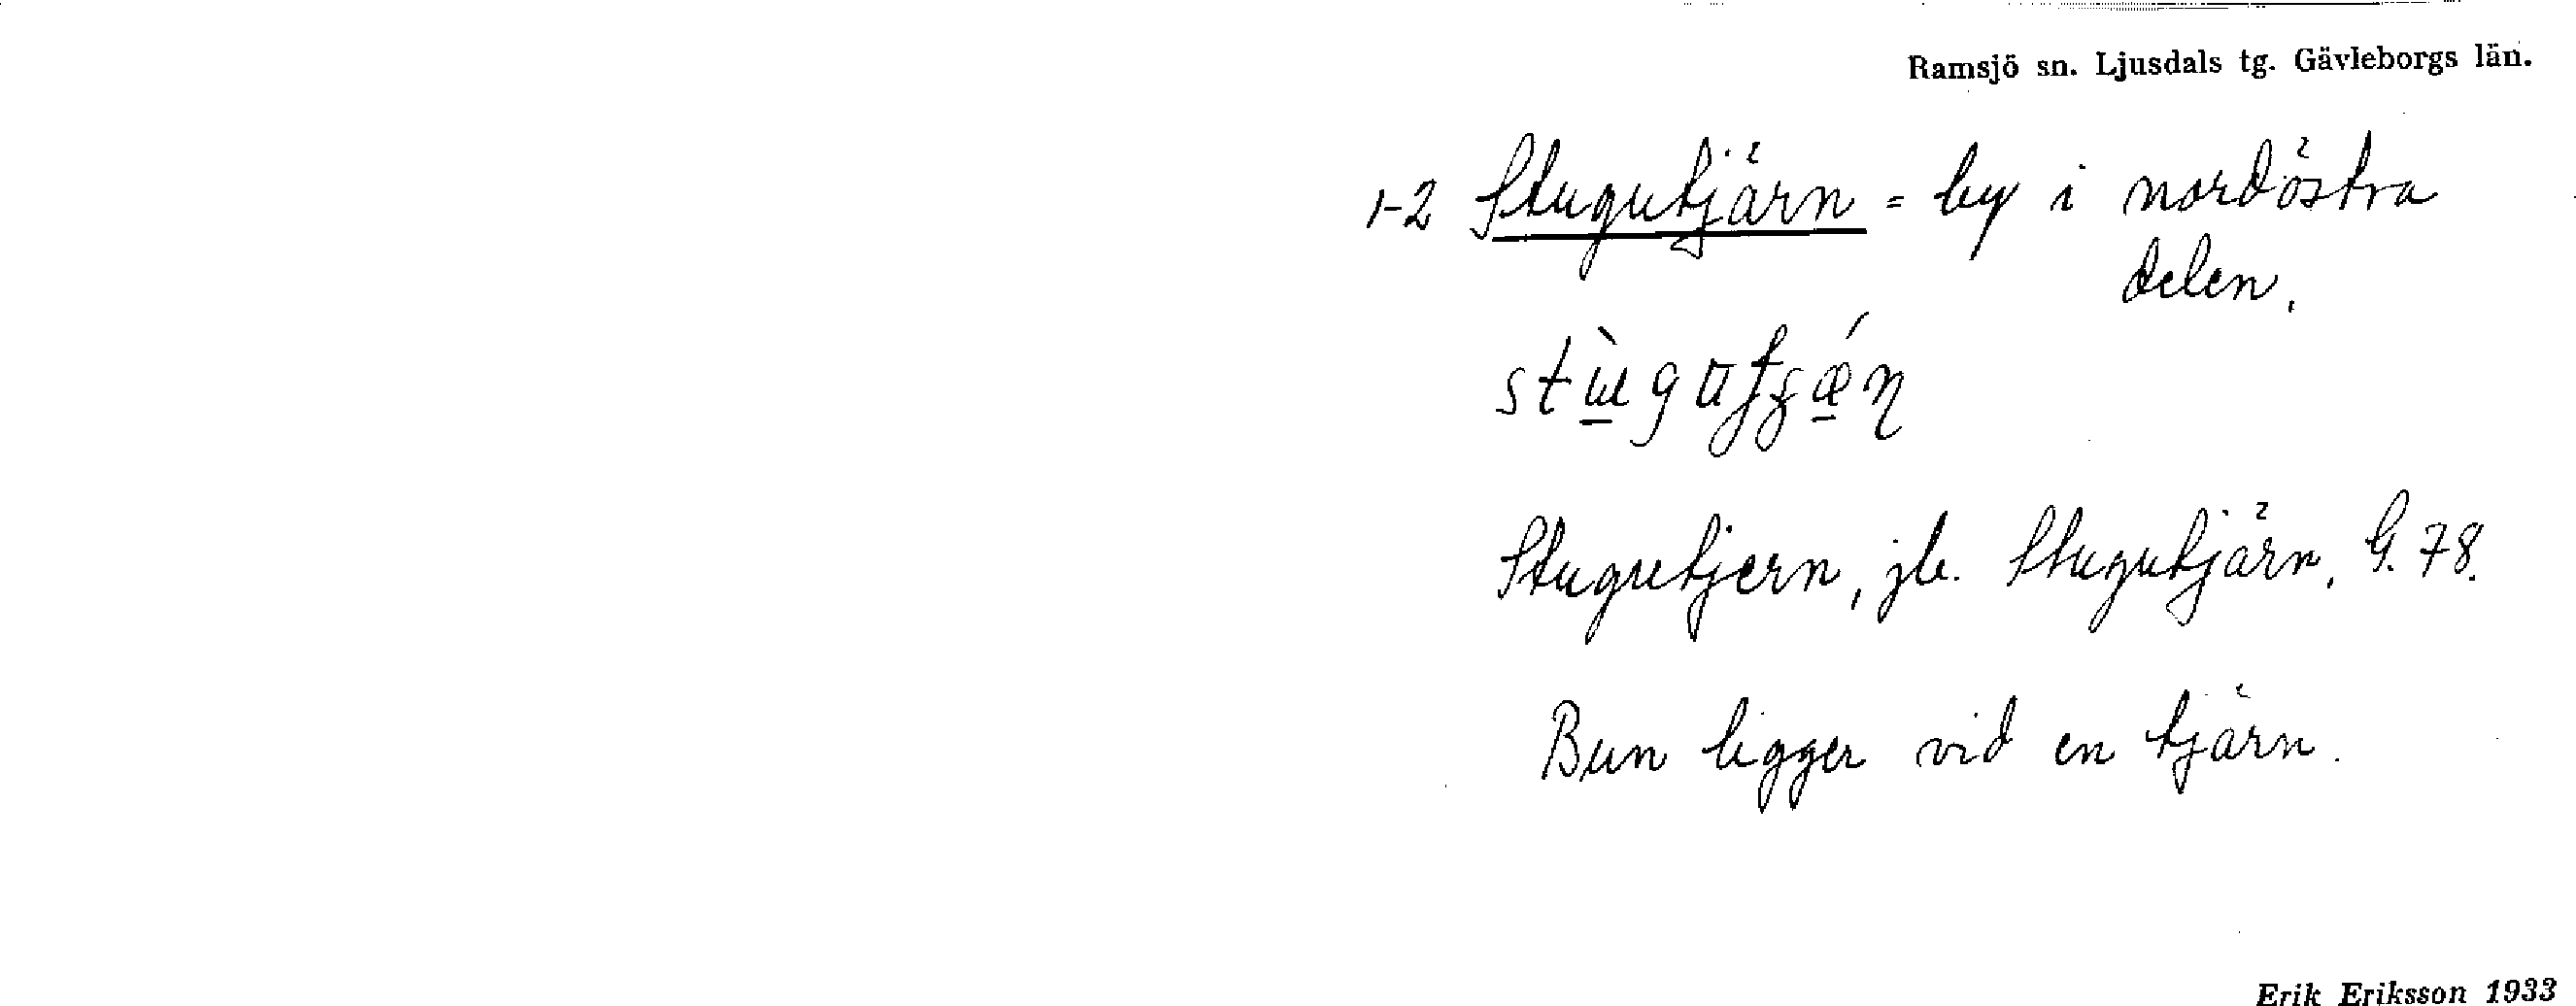 Ramsjö sn. Ljusdals tg. Gävleborgs län.
1-2 Stugutjärn = by i nordöstra
delen.
Stugutjern, jb. Stugutjärn, G. 78.
Byn ligger vid en tjärn.
Erik Eriksson 1933